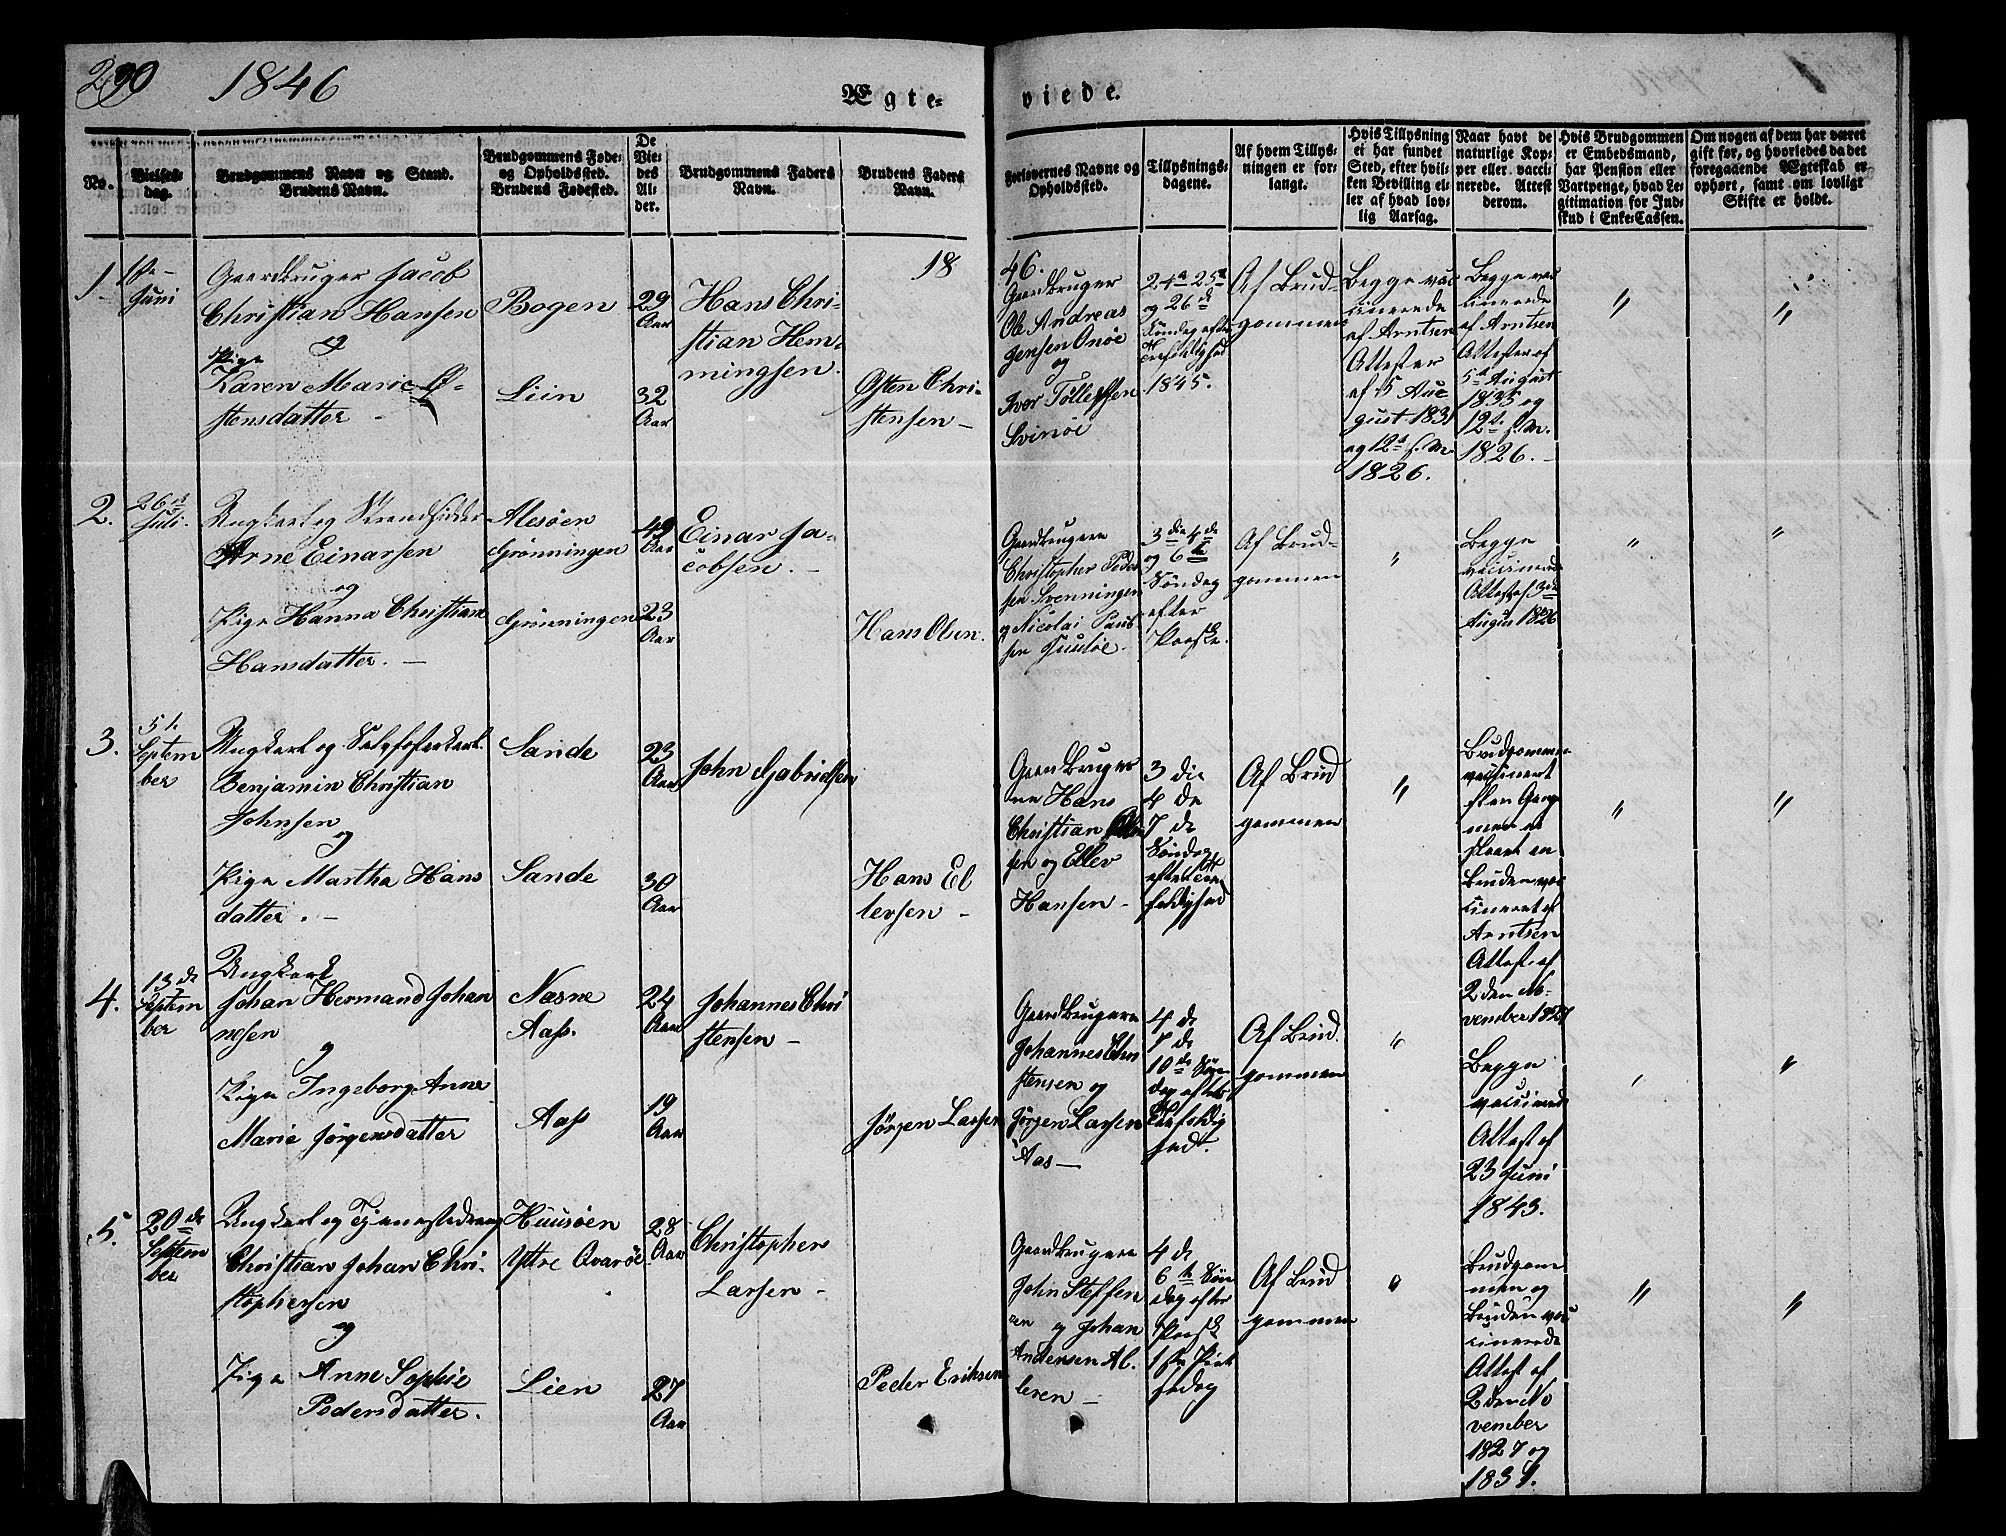 290 1846
Ægte-
viede.
No.
Vielses-
dag.
Brudgommens Navn og Stand.
Brudens Navn.
Brudgommens Føde-
og Opholdsted.
Brudens Fødested.
De
Vie-
des
Al-
der.
Brudgommens Faders
Navn.
Brudens Faders
Navn.
Forlovernes Navne og
Opholdsted.
Tillysnings-
dagene.
Af hvem Tillys-
ningen er for-
langt.
Hvis Tillysning
ei har fundet
Sted, efter hvil-
ken Bevilling el-
ler af hvad lov-
lig Aarsag.
Naar havt de
naturlige Kop-
per eller vacci-
nerede. Attest
derom.
Hvis Brudgommen
er Embedsmand,
har Pension eller
Vartpenge, hvad Le-
gitimation for Ind-
skud i Enke-Cassen.
Om nogen af dem har været
gift før, og hvorledes da det
foregaaende Ægteskab er
ophørt, samt om lovligt
Skifte er holdt.
18
46.
1
Juni
Gaardbruger Jacob
Christian Hansen
&
Pige
Karen Marie Ø-
stensdatter -
Bogen
Liin
29
Aar
32
Aar
Hans Chri-
stian Hem-
mingsen.
Østen Chri-
stensen -
Gaardbruger
Ole Andreas
Jensen Onöe
og
Iver Tollefsen
Svinöe
24de 25de
og 26de
Søndag efter
Trefoldighed
1845.
Af Brud-
gommen
Begge vac
cinerede
af Arntsen
Attester
af 5 Au-
gust 1835
og 12te s. M.
1826.
Begge vac
cinerede
af Arntsen
Attester af
5te August
1835 og
12te s. M.
1826. -
"
"
2.
26de
Juli.
Ungkarl og Strandsidder
Arne Einarsen
og
Pige Hanna Christiane
Hansdatter. -
Alesöen
Grönningen
Grönningen
49
Aar
23
Aar
Einar Ja-
cobsen. -
Hans Olsen.
Gaardbrugere
Christopher Peder
sen Svenningen
og Nicolai Paul-
sen Huusöe.
3die 4de
og 6te
Søndag
efter
Paaske.
Af Brud-
gommen
"
Begge
vaccinerede
Attest af 3die
August 1826
"
"
3.
5t.
Septem
ber
Ungkarl og
Benjamin Christian
Johnsen
og
Pige Martha Hans
datter. -
Sande
Sande
23
Aar
30
Aar
John Gabrielsen
Hans El
levsen -
Gaardbruger
ne Hans
Christian
sen og Ellev
Hansen -
3 die
4 de
7 de
Søndag
efter Tre
foldighed
Af Brud
gommen
"
Brudgommen
vaccineret
Bruden vac
cineret af
Arntsen
Attest af
2den No-
vember 1827
"
"
4.
13de
Septem
ber
Ungkarl
Johan Hermand Johan
nesen
og
Pige Ingeborg Anne
Marie Jörgensdatter
Næsne
Aass.
Aass
24
Aar
19
Aar
Johannes Chri
stensen -
Jörgen Larsen
Gaardbrugere
Johannes Chri
stensen og
Jörgen Larsen
Aas -
4 de
7 de
10de Søn
dag efter
Trefoldig
hed.
Af Brud
gommen
"
Begge
vaccinerede
Attest af
23 Juni
1843.
"
"
5.
20de
Septem
ber
Ungkarl og Tjenestedreng
Christian Johan Chri-
stophersen
og
Pige Anne Sophie
Pedersdatter.
Huusöen
Yttre Qvaröe
Lien
28
Aar
27
Aar
Christopher
Larsen -
Peder Eriksen
Gaardbrugere
John Steffen
sen og Johan
Andersen Al-
teren -
4 de
6te Søn
dag efter
Paaske
1ste Pint
sedag
Af Brud
gommen
"
Brudgom
men og
Bruden vac
cinerede
Attest af
2den No
vember
1827 og
1831.
"
"